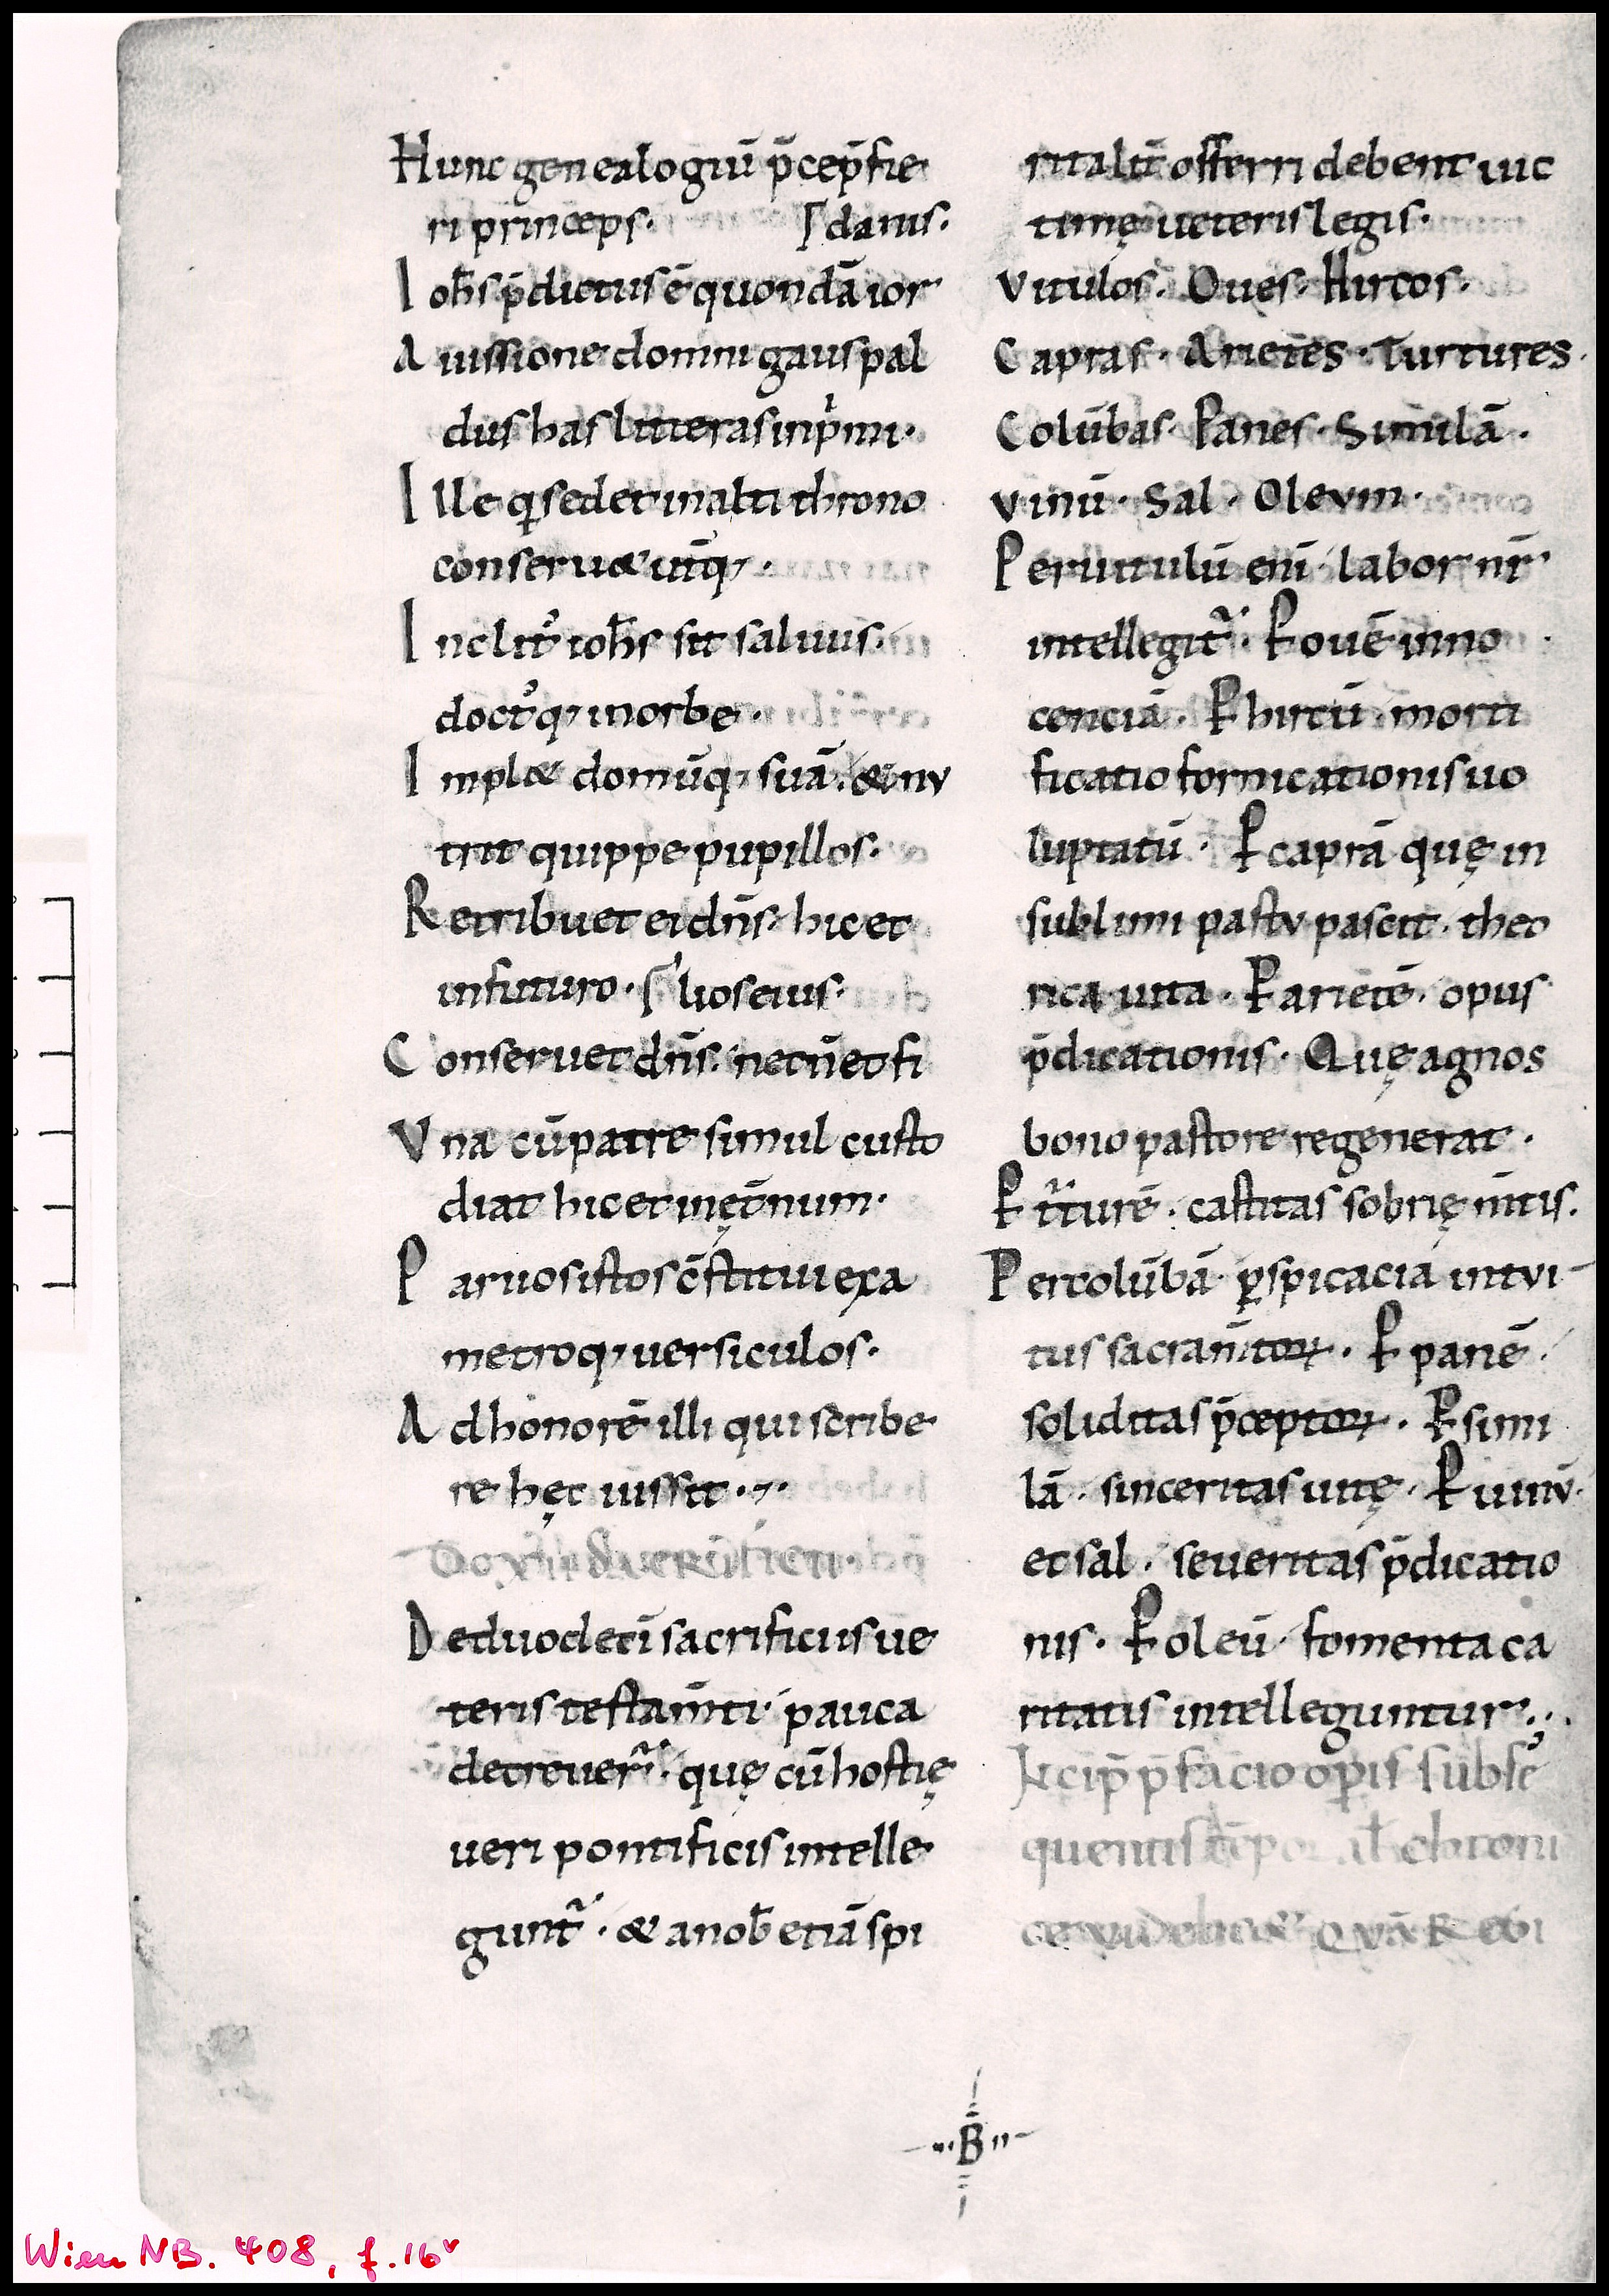 Hunc genealogiū p̄cep̄ fie
ri princeps. ſdanis.
Ioh̄s p̄dictus ē quondā ior
A iussione domni gauspal
dus has litteras inp̍mi.
Ille q̍ sedet in alti throno
conseruæ utiq;.
Inclit᾽ ioh̄s sit saluus.
doct᾽q; in orbe.
Implæ domūq; suā. & nv
trit quippe pupillos.
Retribuet ei dn̄s. hic et
in futuro. ſ lios eius.
Conseruet dn̄s. nec n̄ et fi
Vna cū patre simul custo
diat hic et in ęt̄num.
Paruos istos c̄stitui exa
metroq; uersiculos.
Ad honorē illi qui scribe
re hęc iussit.
De duodeci sacrificiis ue
teris testam̄ti. pauca
decreuer̄. quę cū hostię
ueri pontificis intelle
gunt̄. & a nob̄ etiā spi
ritalit̄ offerri debent uic
timę ueteris legis.
Vitulos. Oues. Hircos.
Capras. Arietes. Turtures.
Colūbas. Panes. Similā.
Vinū. Sal. Olevm.
Per uitulū eni. labor nr̄
intellegit̄. P̱ ouē inno
cenciā. P̱ hircū. morti
ficatio fornicationis uo
luptatū. P̱ caprā quę in
sublimi pastv pascit. theo
rica uita. P̱ arietē. opus
p̄dicationis. Quę agnos
bono pastore regenerat.
P̱ t̄turē. castitas sobrię m̄tis.
Per colūbā. ꝑspicacia intvi
tus sacram̄toꝝ. P̱ panē.
soliditas p̄ceptoꝝ. P̱ simi
lā. sinceritas uitę. P̱ uinv̄.
et sal. seueritas p̄dicatio
nis. P̱ oleū. fomenta ca
ritatis intelleguntur.
Incip̄ p̄facio operis subse
quentis chroni
B
Wien NB. 408, f. 16v